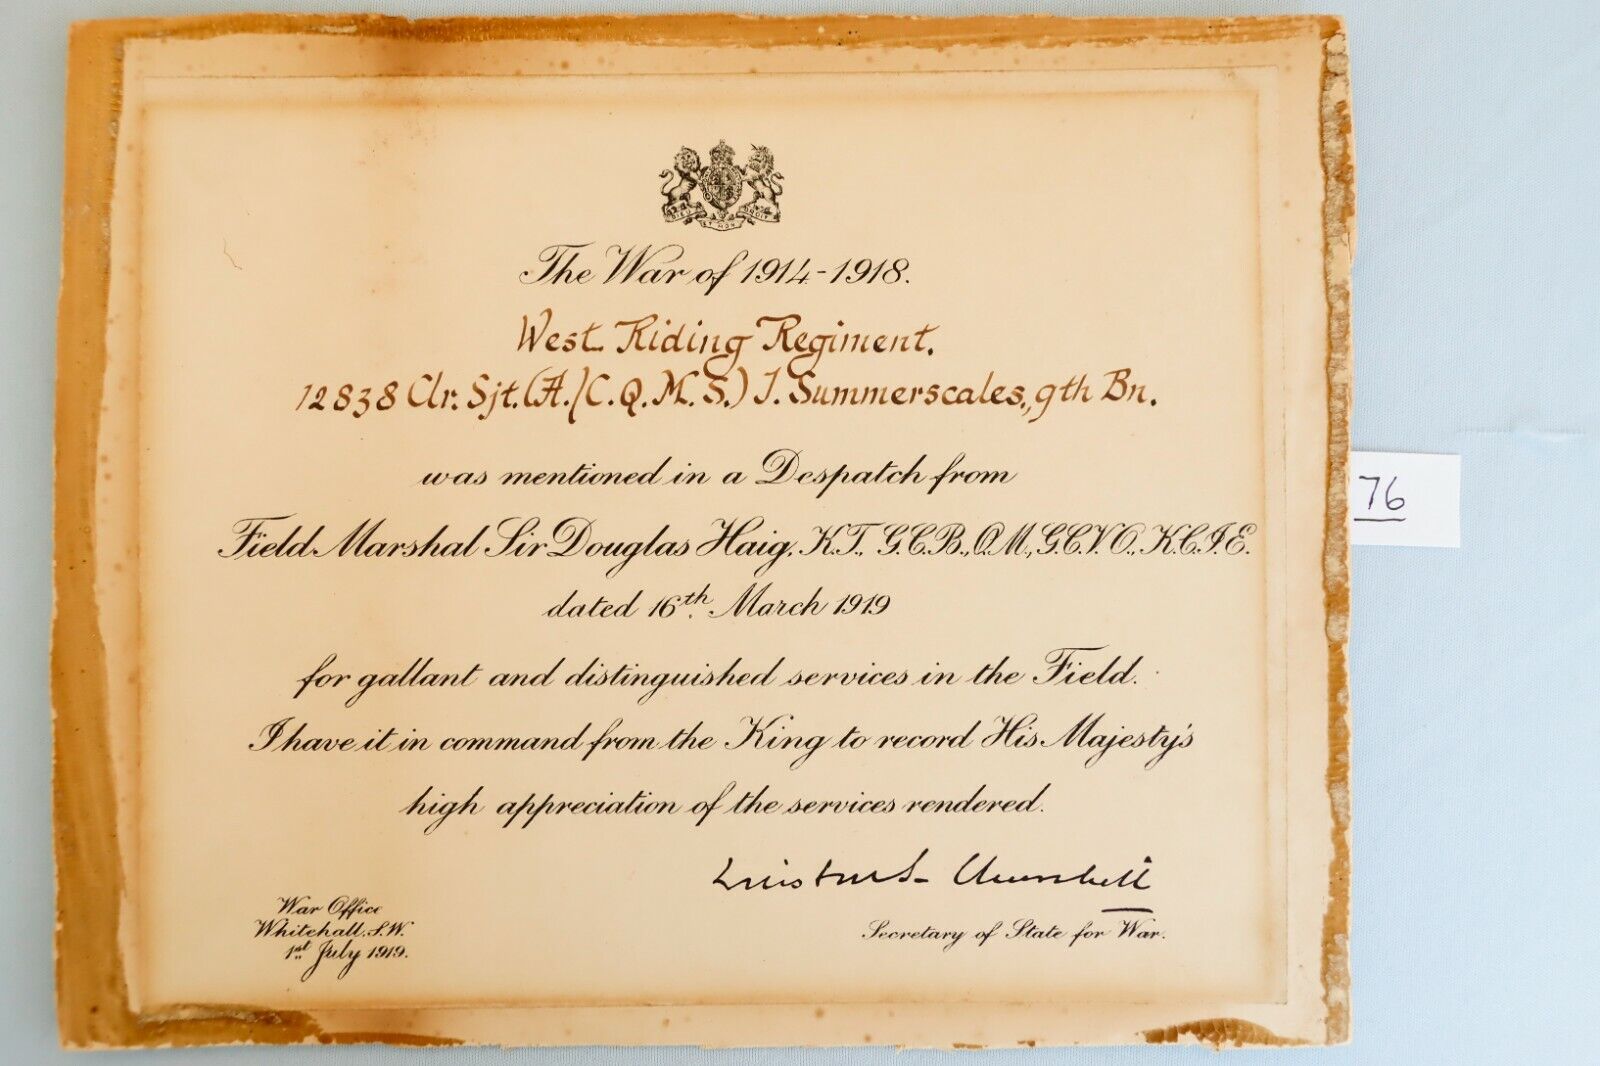 DIEU ET MON DROIT
The War of 1914-1918.
West Riding Regiment.
12838 Clr. Sjt. (A./C.Q.M.S.) J. Summerscales, 9th Bn.
was mentioned in a Despatch from
Field Marshal Sir Douglas Haig, K.T., G.C.B., O.M., G.C.V.O., K.C.I.E.
dated 16th March 1919
for gallant and distinguished services in the Field.
I have it in command from the King to record His Majesty's
high appreciation of the services rendered.
Winston S. Churchill
War Office
Whitehall. S.W.
1st July 1919.
Secretary of State for War.
76